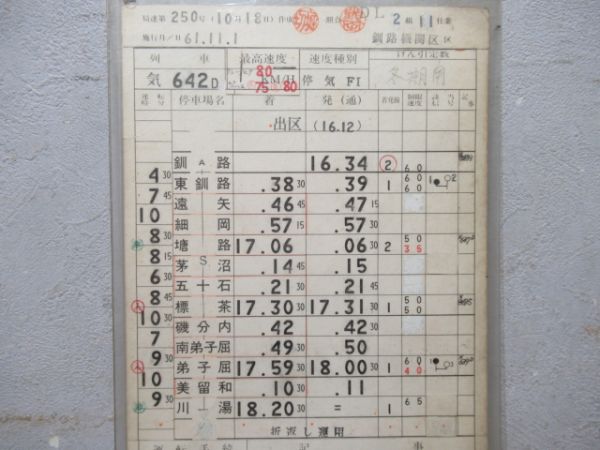 局達第 250号 (10月18日) 作成
DL 2組 11仕業
施行月/日 61.11.1 釧路機関区
列車 最高速度 速度種別 けん引定数
気 642D 80 KM/H 75 80 停気 F1 冬期間
運転時分 停車場名 着 発(通) 着発線 制限速度 記事
出区 (16.12)
釧路 16.34 2 60
4 30 東釧路 .38 30 .39 1 60 60
7 45 遠矢 .46 45 .47 15
10 細岡 .57 15 .57 30 50
8 30 塘路 17.06 .06 30 2 50 35
8 15 茅沼 .14 45 .15
6 30 五十石 .21 30 .21 45
8 45 標茶 17.30 30 17.31 30 1 50 50
10 30 磯分内 .42 .42 30
7 南弟子屈 .49 30 .50
9 30 弟子屈 17.59 30 18.00 30 1 60 40
10 美留和 .10 30 .11
9 30 川湯 18.20 30 = 1 65
折返し運用
記事